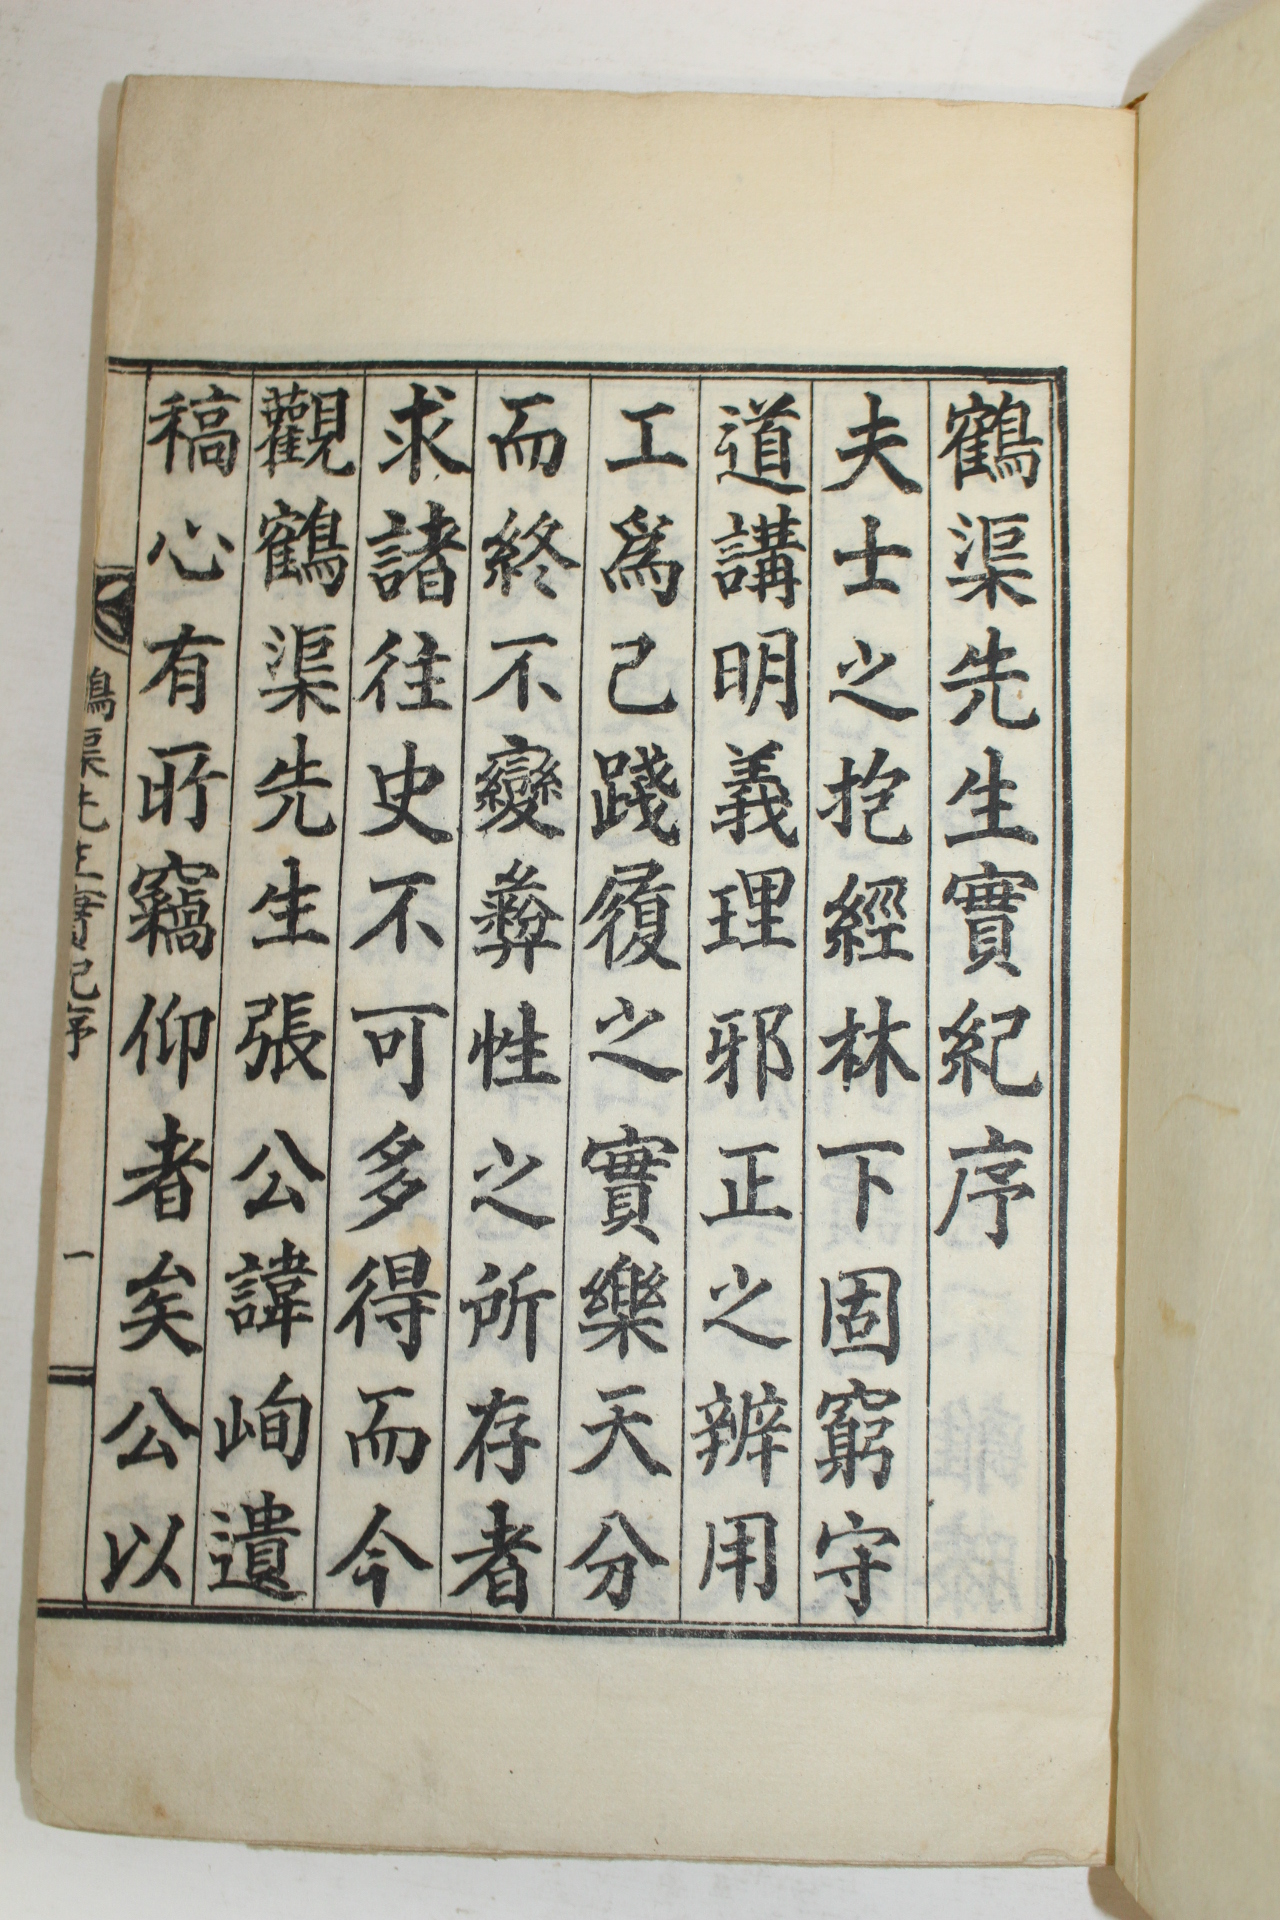 鶴渠先生實紀序
夫士之抱經林下固窮守
道講明義理邪正之辨用
工爲己踐履之實樂天分
而終不變彛性之所存者
求諸往史不可多得而今
觀鶴渠先生張公諱峋遺
稿心有所竊仰者矣公以
鶴渠先生實紀序
一